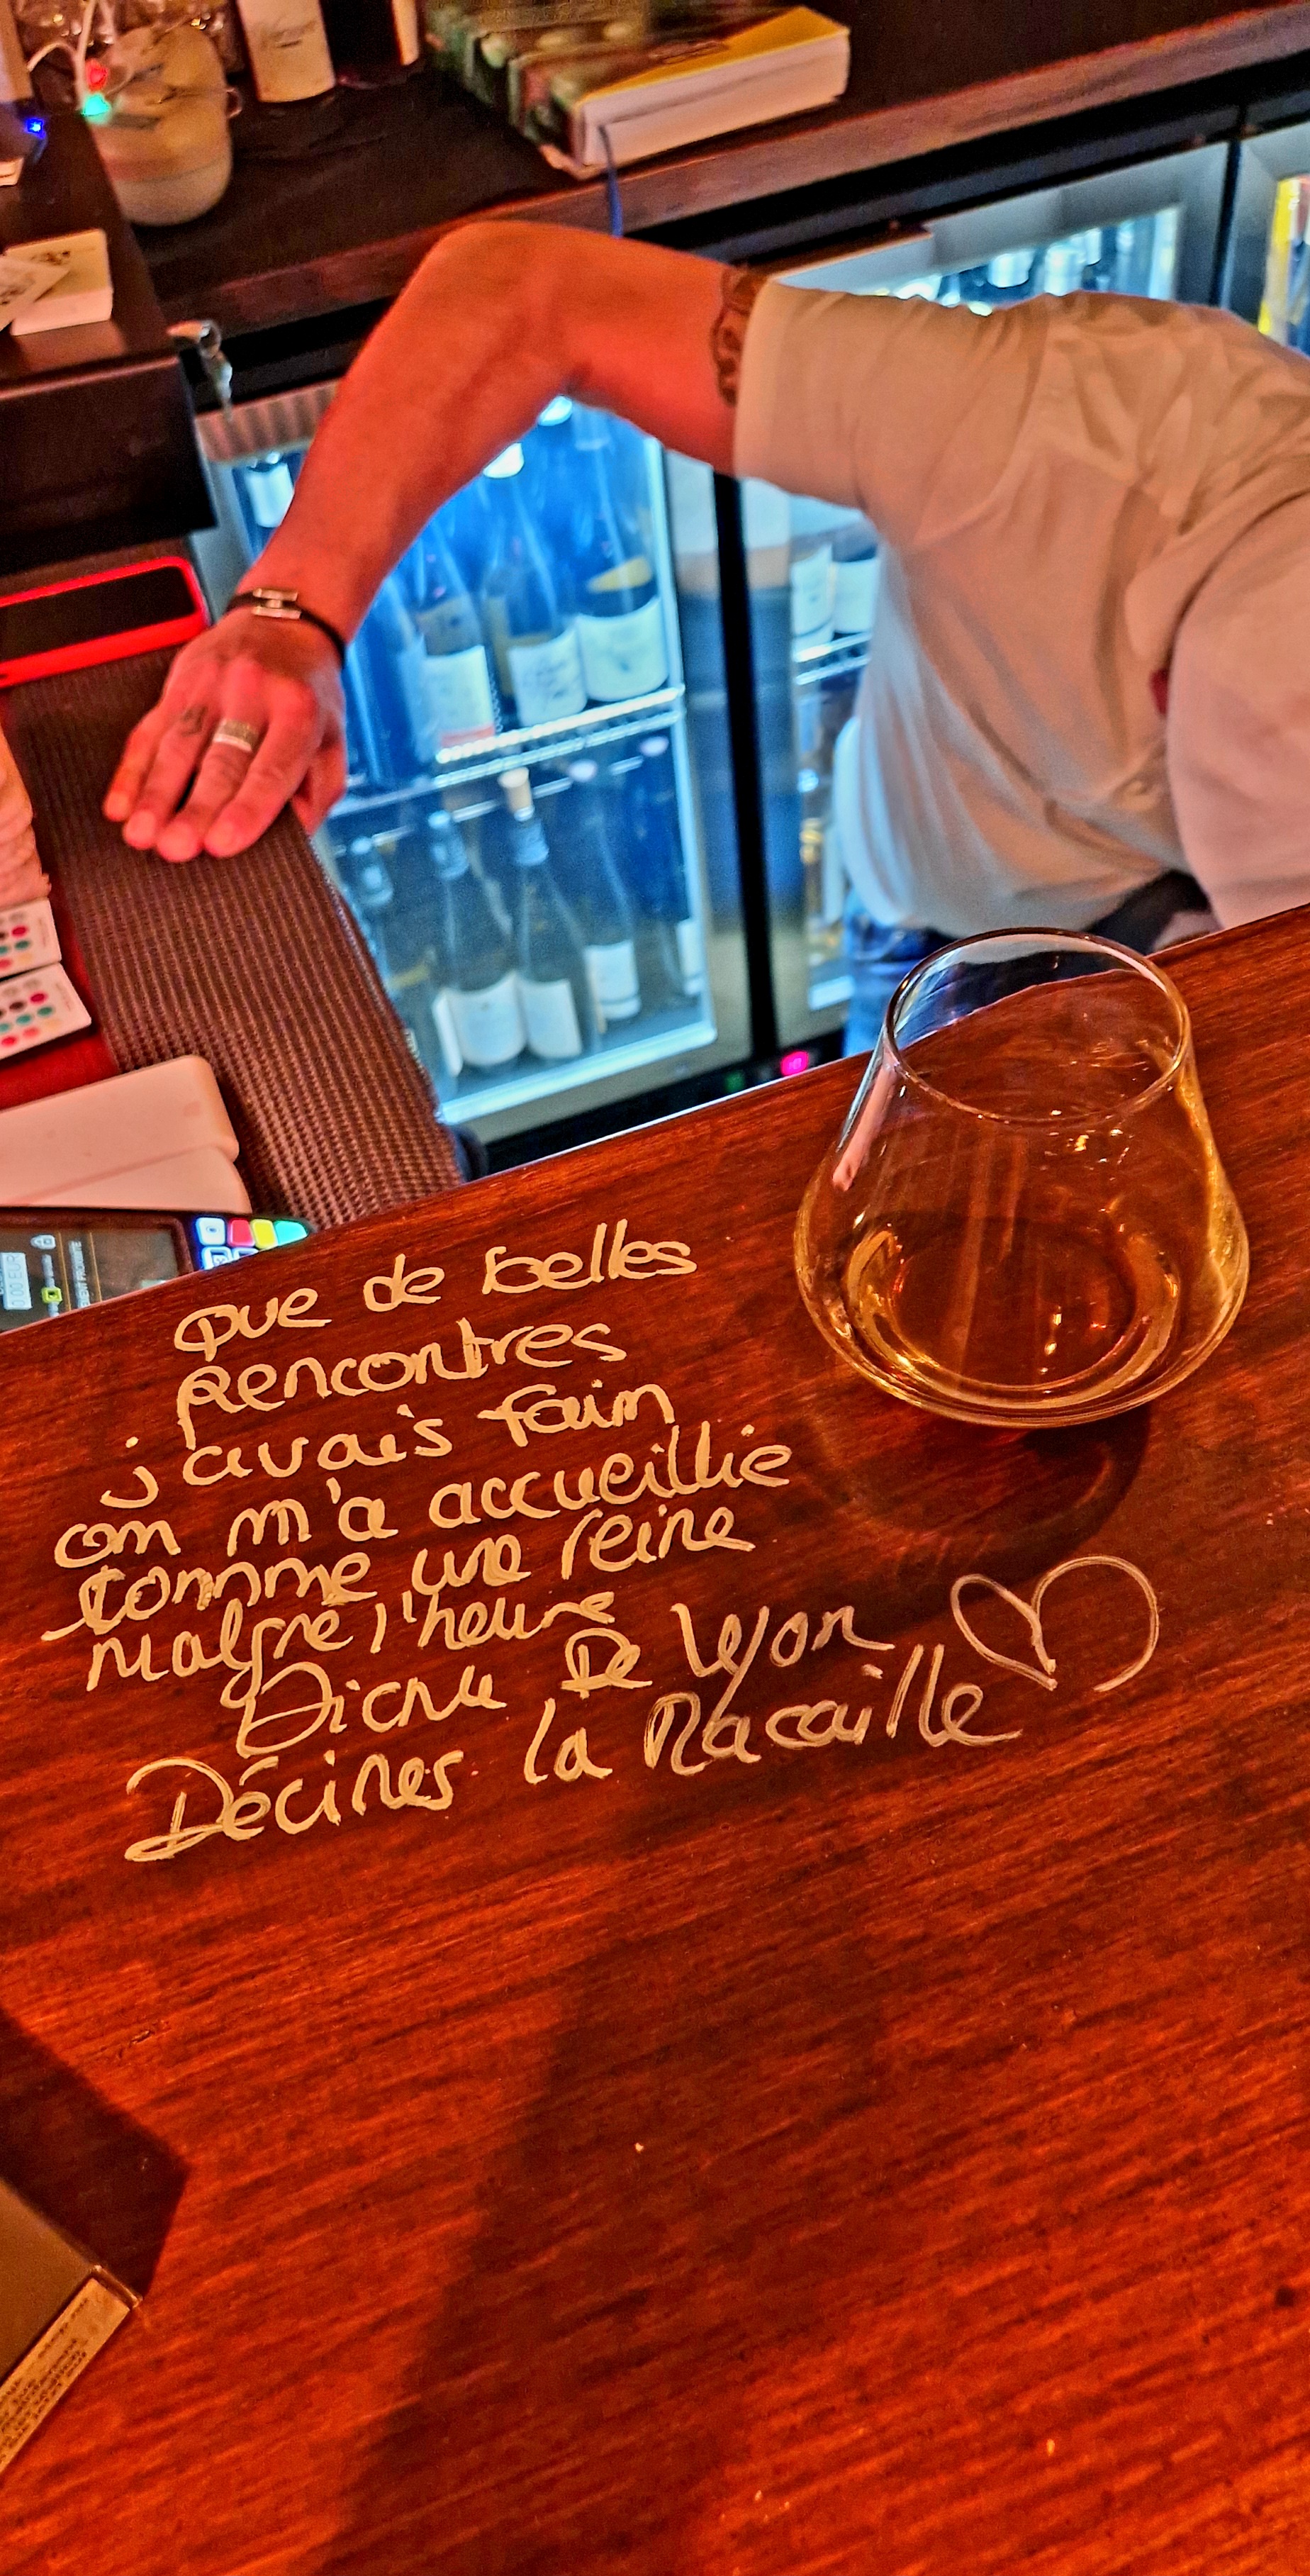 que de belles
rencontres
j'avais faim
on m'a accueillie
comme une reine
malgré l'heure
De Lyon
Décines la Racaille